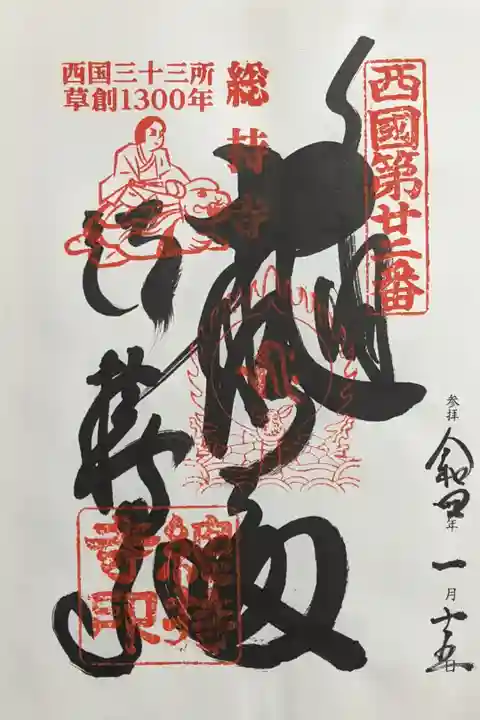 西國第廿二番
西国三十三所
草創1300年
総持寺
大悲殿
総持寺
総持寺印
参拝
令和四年
一月
十五日